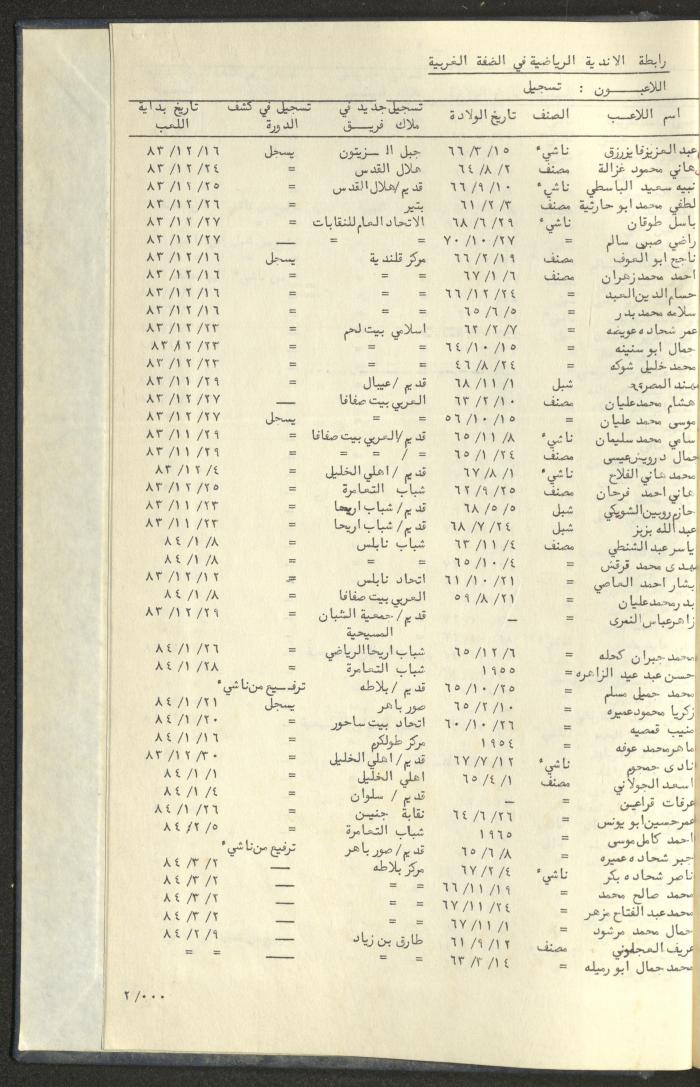 رابطة الاندية الرياضية في الضفة الغربية
اللاعبـــون : تسجيل
اسم اللاعب الصنف تاريخ الولادة تسجيل جديد في ملاك فريق تسجيل في كشف الدورة تاريخ بداية اللعب
عبد العزيز فايز رزق ناشيء ١٥ /٣ /٦٦ جبل الزيتون يسجل ٨٣/١٢/١٦
هاني محمود غزالة مصنف ٢ /٨ /٦٤ هلال القدس = ٨٣/١٢/٢٤
نبيه سعيد الباسطي ناشيء ١٠ /٩ /٦٦ قديم/هلال القدس = ٨٣/١٢/٢٥
لطفي محمد ابو حارثية مصنف ٣ /٢ /٦١ بتير = ٨٣/١٢/٢٦
باسل طوقان ناشيء ٢٩ /٦ /٦٨ الاتحاد العام للنقابات = ٨٣/١٢/٢٧
راضي صبري سالم = ٢٧ /١٠ /٧٠ = = — ٨٣/١٢/٢٧
ناجح ابو العوف مصنف ١٩ /٢ /٦٦ مركز قلندية يسجل ٨٣/١٢/١٦
احمد محمد زهران مصنف ٦ /١ /٦٧ = = = ٨٣/١٢/١٦
حسام الدين العبد = ٢٤ /١٢ /٦٦ = = = ٨٣/١٢/١٦
سلامه محمد بدر = ٥ /٦ /٦٥ = = = ٨٣/١٢/١٦
عمر شحاده عويضه = ٧ /٢ /٦٢ اسلامي بيت لحم = ٨٣/١٢/٢٣
جمال ابو سنينه = ١٥ /١٠ /٦٤ = = = ٨٣/١٢/٢٣
محمد خليل شوكه = ٢٤ /٨ /٤٦ = = = ٨٣/١٢/٢٣
مهند المصري شبل ١ /١١ /٦٨ قديم /عيبال = ٨٣/١١/٢٩
هشام محمد عليان مصنف ١٠ /٢ /٦٣ العربي بيت صفافا — ٨٣/١٢/٢٧
موسى محمد عليان = ١٥ /١٠ /٥٦ = = يسجل ٨٣/١٢/٢٧
سامي محمد سليمان ناشيء ٨ /١١ /٦٥ قديم/العربي بيت صفافا = ٨٣/١١/٢٩
جمال درويش عيسى مصنف ٢٤ /١ /٦٥ = / = = = ٨٣/١١/٢٩
محمد هاني الفلاح ناشيء ١ /٨ /٦٧ قديم /اهلي الخليل = ٨٣/١٢/٤
هاني احمد فرحان مصنف ٢٥ /٩ /٦٢ شباب التعامرة = ٨٣/١٢/٢٥
حازم روبين الشويكي شبل ٥ /٥ /٦٨ قديم/ شباب اريحا = ٨٣/١١/٢٣
عبد الله بزبز شبل ٢٤ /٧ /٦٨ قديم/ شباب اريحا = ٨٣/١١/٢٣
ياسر عبد الشنطي مصنف ٤ /١١ /٦٣ شباب نابلس = ٨٤/١/٨
مهدي محمد قرقش = ٤ /١٠ /٦٥ = = = ٨٤/١/٨
بشار احمد العاصي = ٢١ /١٠ /٦١ اتحاد نابلس = ٨٣/١٢/١٢
بدر محمد عليان = ٢١ /٨ /٥٩ العربي بيت صفافا = ٨٤/١/٨
زاهر عباس النمرى = — قديم/ جمعية الشبان المسيحية = ٨٣/١٢/٢٩
محمد جبران كحله = ٦ /١٢ /٦٥ شباب اريحا الرياضي = ٨٤/١/٢٦
حسن عبد عيد الزاهره = ١٩٥٥ شباب التعامرة = ٨٤/١/٢٨
محمد جميل مسلم = ٢٥ /١٠ /٦٥ قديم /بلاطه ترفيع من ناشيء
زكريا محمود عميره = ١٠ /٢ /٦٥ صور باهر يسجل ٨٤/١/٢١
منيب قمصيه = ٢٦ /١٠ /٦٠ اتحاد بيت ساحور = ٨٤/١/٢٠
ماهر محمد عوفه = ١٩٥٤ مركز طولكرم = ٨٤/١/١٦
نادى جمجوم ناشيء ١٢ /٧ /٦٧ قديم/اهلي الخليل = ٨٣/١٢/٣٠
اسعد الجولاني مصنف ١ /٤ /٦٥ اهلي الخليل = ٨٤/١/١
عرفات قراعين = — قديم / سلوان = ٨٤/١/٤
عمر حسين ابو يونس = ٢٦ /٦ /٦٤ نقابة جنين = ٨٤/١/٢٦
احمد كامل موسى = ١٩٦٥ شباب التعامرة = ٨٤/٢/٥
جبر شحاده عميره = ٨ /٦ /٦٥ قديم/صور باهر ترفيع من ناشيء
ناصر شحاده بكر ناشيء ٤ /٢ /٦٧ مركز بلاطه — ٨٤/٣/٢
محمد صالح محمد = ١٩ /١١ /٦٦ = = — ٨٤/٣/٢
محمد عبد الفتاح مزهر = ٢٤ /١١ /٦٧ = = — ٨٤/٣/٢
جمال محمد مرشود = ١ /١١ /٦٧ = = — ٨٤/٣/٢
عريف العجلوني مصنف ١٢ /٩ /٦١ طارق بن زياد — ٨٤/٢/٩
محمد جمال ابو رميله = ١٤ /٣ /٦٣ = = — = =
٢/٠٠٠